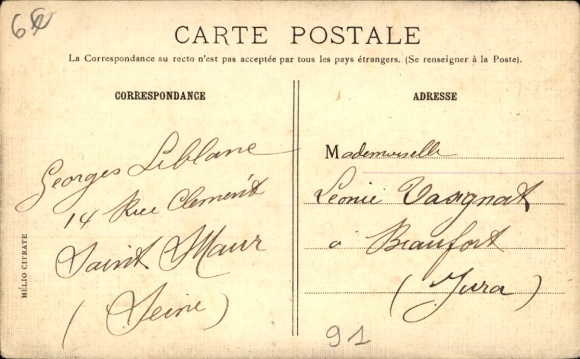 CARTE POSTALE
La Correspondance au recto n'est pas acceptée par tous les pays étrangers. (Se renseigner à la Poste).
CORRESPONDANCE
Georges Leblanc
14 Rue Clement
Saint Maur
(Seine)
HÉLIO CITRATE
ADRESSE
Mademoiselle
Léonie
à Beaufort
(Jura)
91